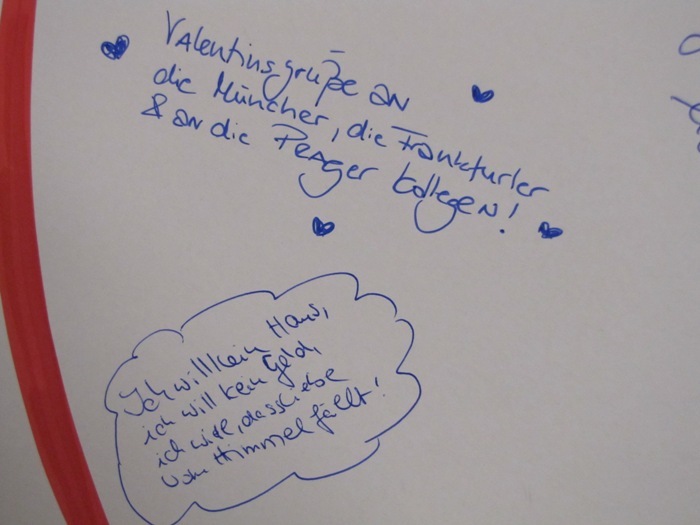 Valentinsgrüße an
die Müncher, die Frankfurter
& an die Prager Kollegen!
Ich will kein Haus,
ich will kein Geld,
ich will, dass Liebe
vom Himmel fällt!